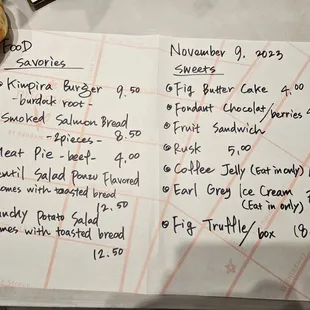 FOOD
Savories
Kimpira Burger 9.50
- burdock root -
Smoked Salmon Bread
- 2pieces - 8.50
Meat Pie - beef - 4.00
Lentil Salad Ponzu Flavored
comes with toasted bread
12.50
Crunchy Potato Salad
comes with toasted bread
12.50
November 9, 2023
Sweets
Fig Butter Cake 4.00
Fondant Chocolat/berries
Fruit Sandwich
Rusk 5.00
Coffee Jelly (Eat in only)
Earl Grey Ice Cream
(Eat in only)
Fig Truffle/box